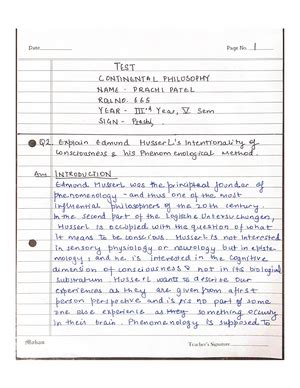 Date
Page No. 1
TEST
CONTINENTAL PHILOSOPHY
NAME - PRACHI PATEL
ROLL NO. 665
YEAR - IIIrd Year, V Sem
SIGN - Prachi
Q2. Explain Edmund Husserl's Intentionality of
Consciousness & his Phenomenological Method.
Ans INTRODUCTION
Edmund Husserl was the principal founder of
phenomenology - and thus one of the most
influential philosophers of the 20th century.
In the second part of the Logische Untersuchungen,
Husserl is occupied with the question of what
it means to be conscious. Husserl is not interested
in sensory physiology or neurology but in episte-
mology; and he is interested in the cognitive
dimension of consciousness & not in its biological
substratum. Husserl wants to describe our
experiences as they are given from a first
person perspective and is no part of some
one else experience as they something occurs
in their brain. Phenomenology is supposed to
Teacher's Signature